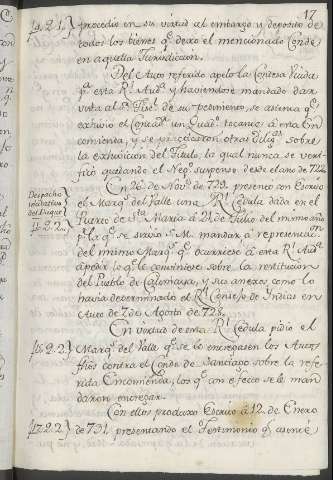 17
[P. 21.] procedio en su virtud al embargo y deposito de
todos los bienes q.e dexo el mencionado Conde
en aquella Jurisdiccion.
Del Auto referido apelo la Condesa Viuda
p.a esta R.l Aud.a y haviendose mandado dar
vista al S.r Fisc.l de su pedimento, se asienta q.e
exhivio el Contad.r un Quad.no tocante á esta En-
comienda, y se practicaron otras Dilig.s sobre
la exhivicion del Titulo, la qual nunca se veri-
ficó quedando el Neg.o suspenso desde el año de 722
Despacho
relativo
del Duque
P. 22.
En 26 de Nov.e de 729. presentó con Escrito
el Marq.s del Valle una R.l Cedula dada en el
Puerto de S.ta Maria á 21 de Julio del mismo año
p.r la q.e se sirvió S. M. mandar á representacion
del mismo Marq.s q.e ocurriese á esta R.l Aud.a
á pedir lo q.e le combiniese sobre la restitucion
del Pueblo de y sus anexos como lo
havia determinado el R.l Consejo de Indias en
Auto de 7 de Agosto de 728.
En virtud de esta R.l Cedula pidió el
[P. 22.] Marq.s del Valle q.e se le entregasen los Autos
fhos contra el Conde de sobre la refe-
rida Encomienda, los q.e con efecto se le man-
daron entregar.
Con ellos produxo Escrito á 12 de Enero
[P. 22.] de 731. presentando el Testimonio q.e asienta